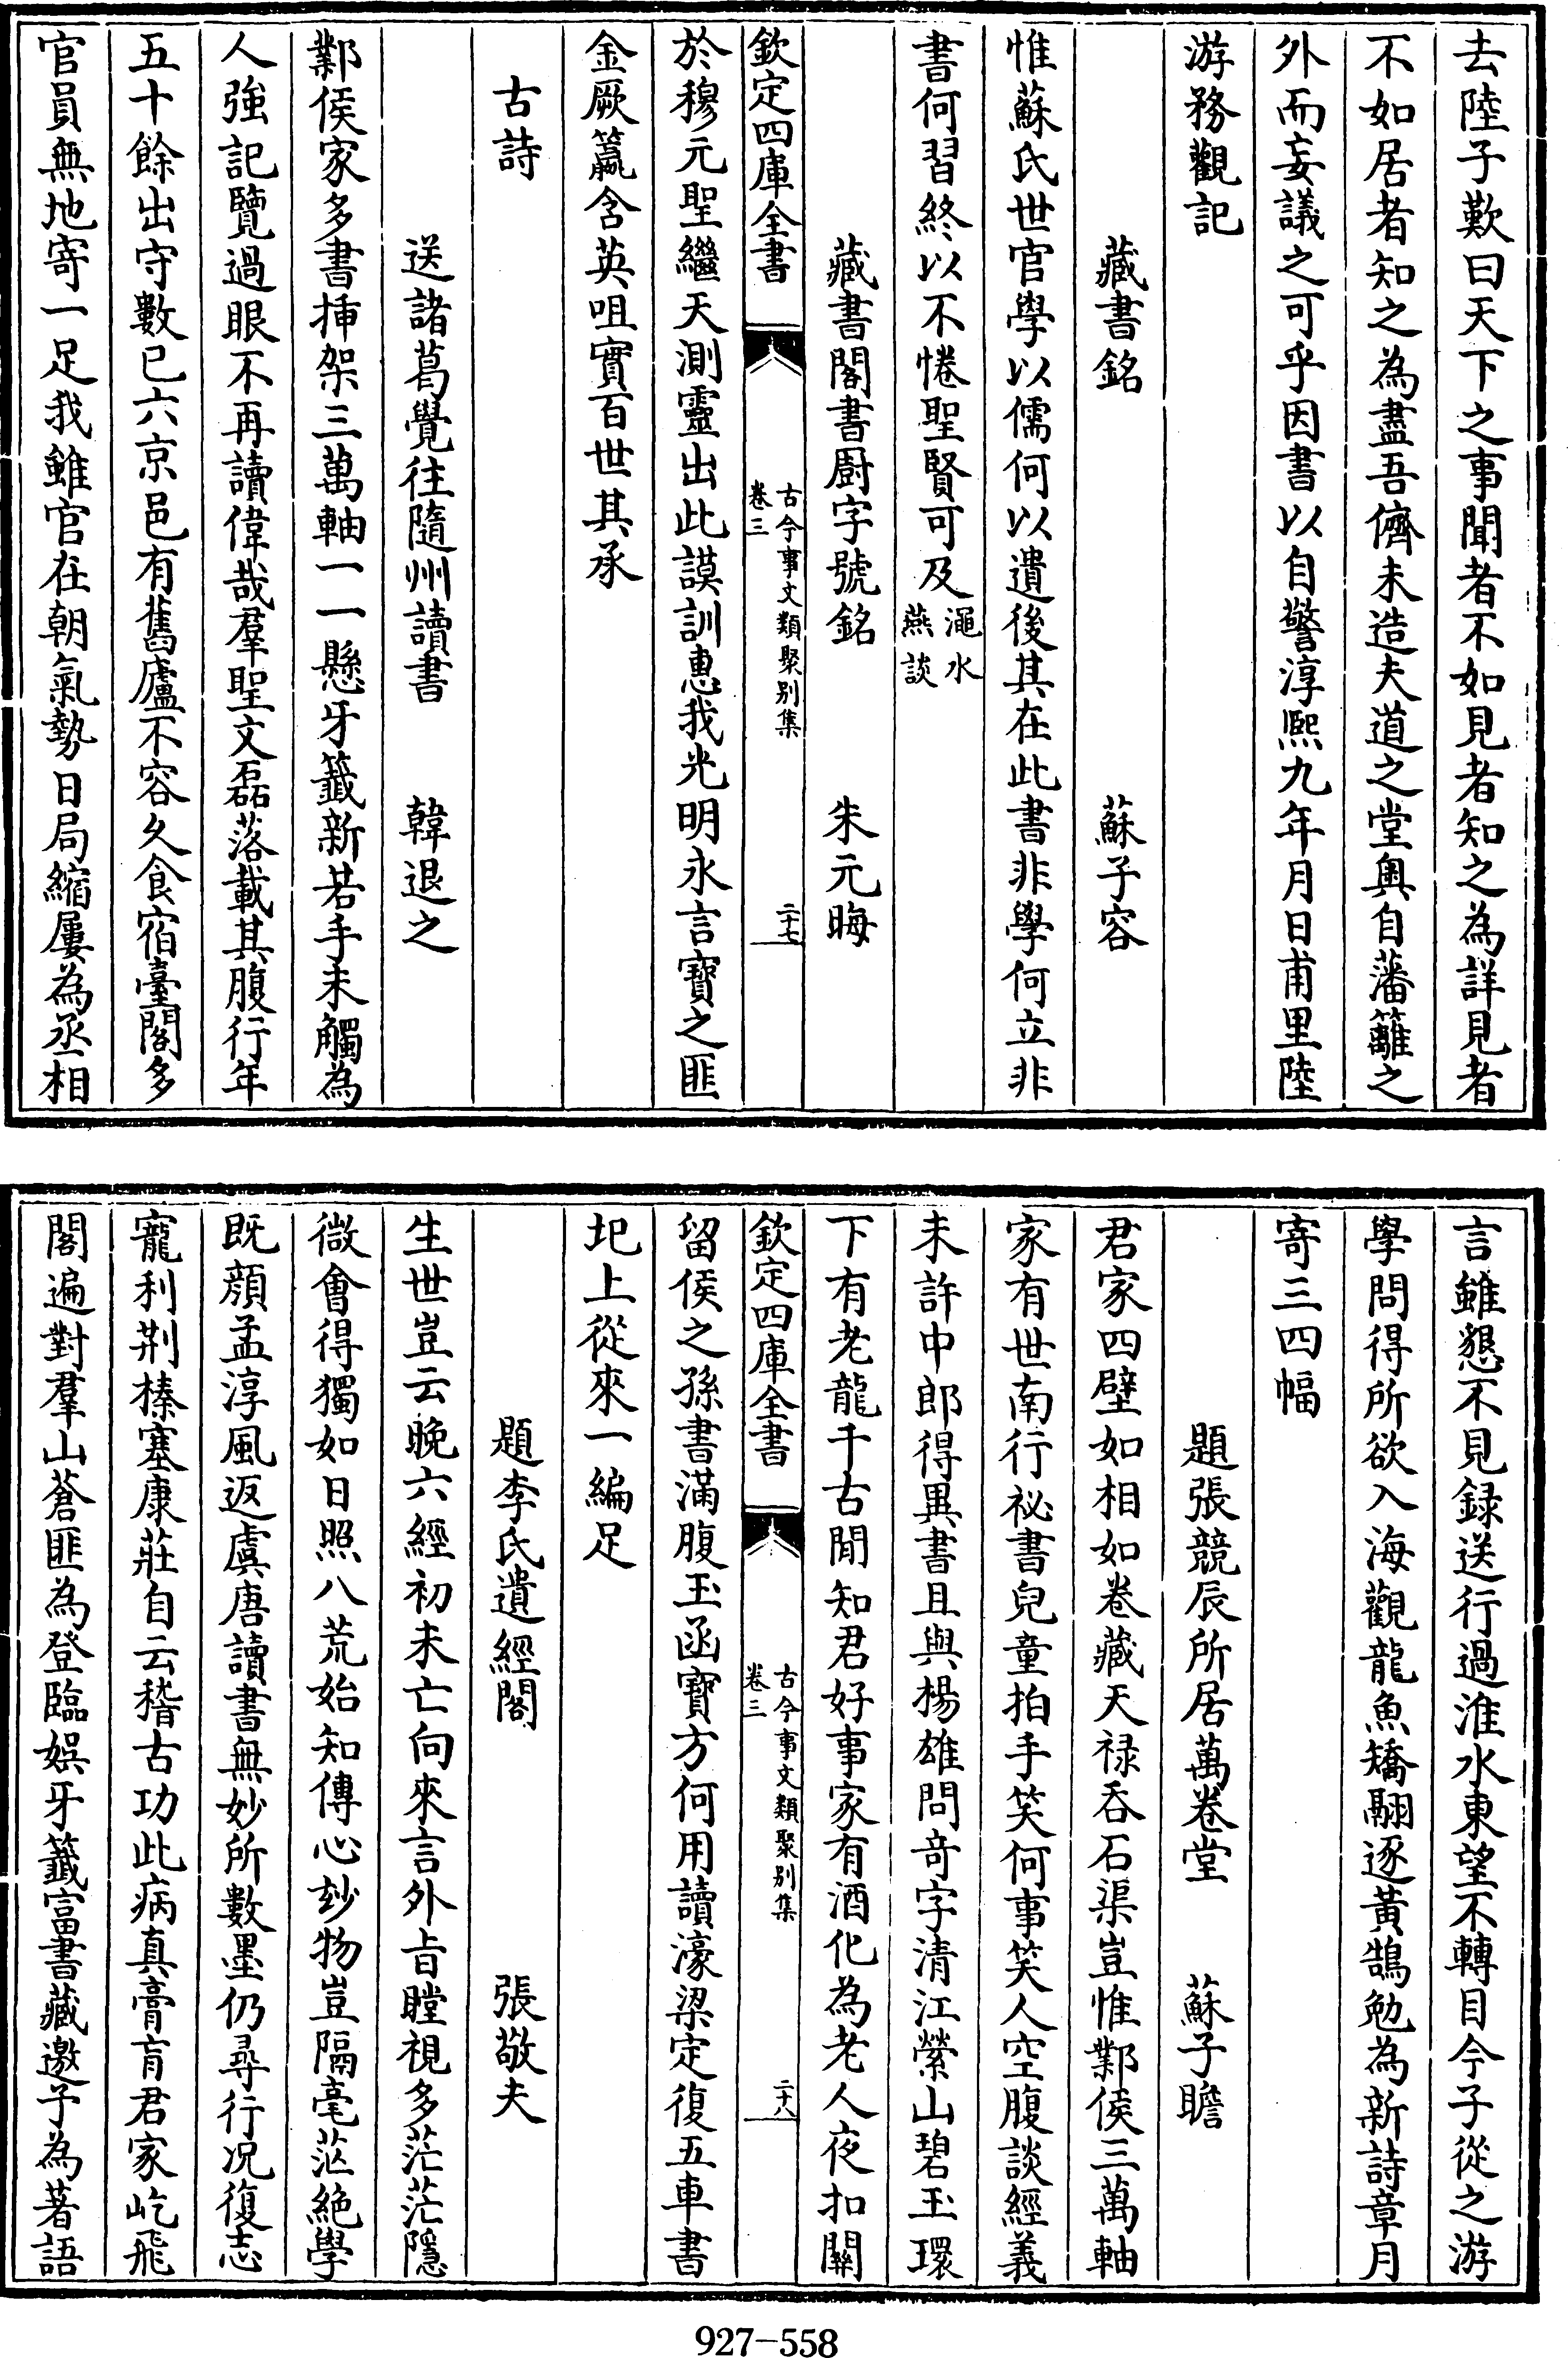 去陸子歎曰天下之事聞者不如見者知之為詳見者
不如居者知之為盡吾儕未造夫道之堂奥自藩籬之
外而妄議之可乎因書以自警淳熙九年月日甫里陸
游務觀記
藏書銘 蘇子容
惟蘇氏世官學以儒何以遺後其在此書非學何立非
書何習終以不惓聖賢可及澠水燕談
藏書閣書厨字號銘 朱元晦
欽定四庫全書 古今事文類聚别集 卷三 二十七
於穆元聖繼天測靈出此謨訓惠我光明永言寶之匪
金厥籯含英咀實百世其承
古詩
送諸葛覺往隨州讀書 韓退之
鄴侯家多書揷架三萬軸一一懸牙籤新若手未觸為
人強記覽過眼不再讀偉哉羣聖文磊落載其腹行年
五十餘出守數已六京邑有舊廬不容久食宿臺閣多
官員無地寄一足我雖官在朝氣勢日局縮屢為丞相
言雖懇不見録送行過淮水東望不轉目今子從之游
學問得所欲入海觀龍魚矯翮逐黄鵠勉為新詩章月
寄三四幅
題張競辰所居萬卷堂 蘇子瞻
君家四壁如相如卷藏天禄吞石渠豈惟鄴侯三萬軸
家有世南行祕書兒童拍手笑何事笑人空腹談經義
未許中郎得異書且與楊雄問奇字清江縈山碧玉環
下有老龍千古閒知君好事家有酒化為老人夜扣關
欽定四庫全書 古今事文類聚别集 卷三 二十八
留侯之孫書滿腹玉函寶方何用讀濠梁定復五車書
圯上從來一編足
題李氏遺經閣 張敬夫
生世豈云晚六經初未亡向來言外㫖瞠視多茫茫隱
微㑹得獨如日照八荒始知傳心玅物豈隔毫茫絶學
既顔孟淳風返虞唐讀書無妙所數墨仍尋行况復志
寵利荆榛塞康莊自云稽古功此病真膏肓君家屹飛
閣遍對羣山蒼匪為登臨娯牙籤富書藏邀予為著語
927-558